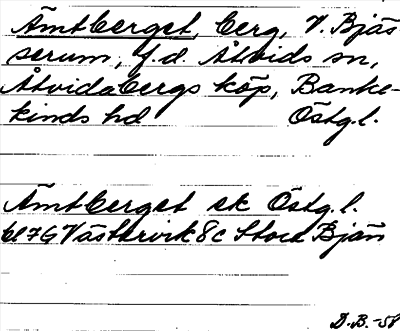 Ämtberget, berg, V. Bjäs
serum, f.d. Åtvids sn,
Åtvidabergs köp, Banke-
kinds hd Östg.l.
Ämtberget ek Östg.l.
bl 7G Västervik 8c Stora Bjän
D.B.-58